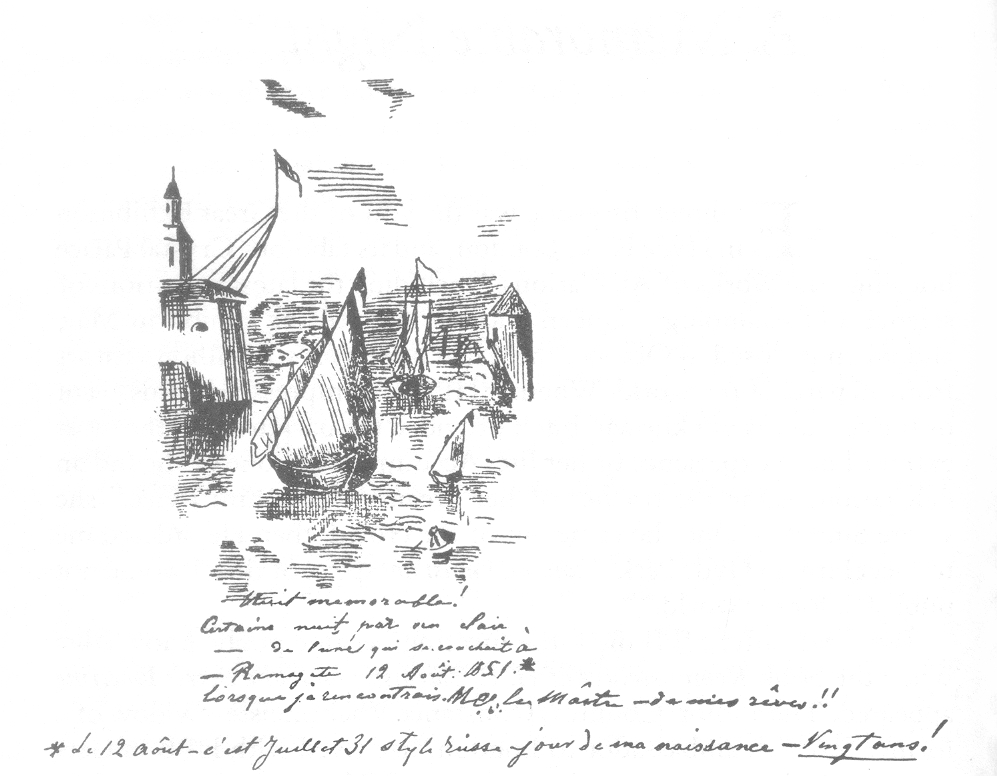 Nuit memorable!
Certaine nuit, par un clair
— de lune qui se couchait à
— Ramsgate 12 Août. 1851.*
lorsque je rencontrais M∴ le Maître — de mes rêves!!
* Le 12 août — c'est Juillet 31 style russe — jour de ma naissance — Vingt ans!